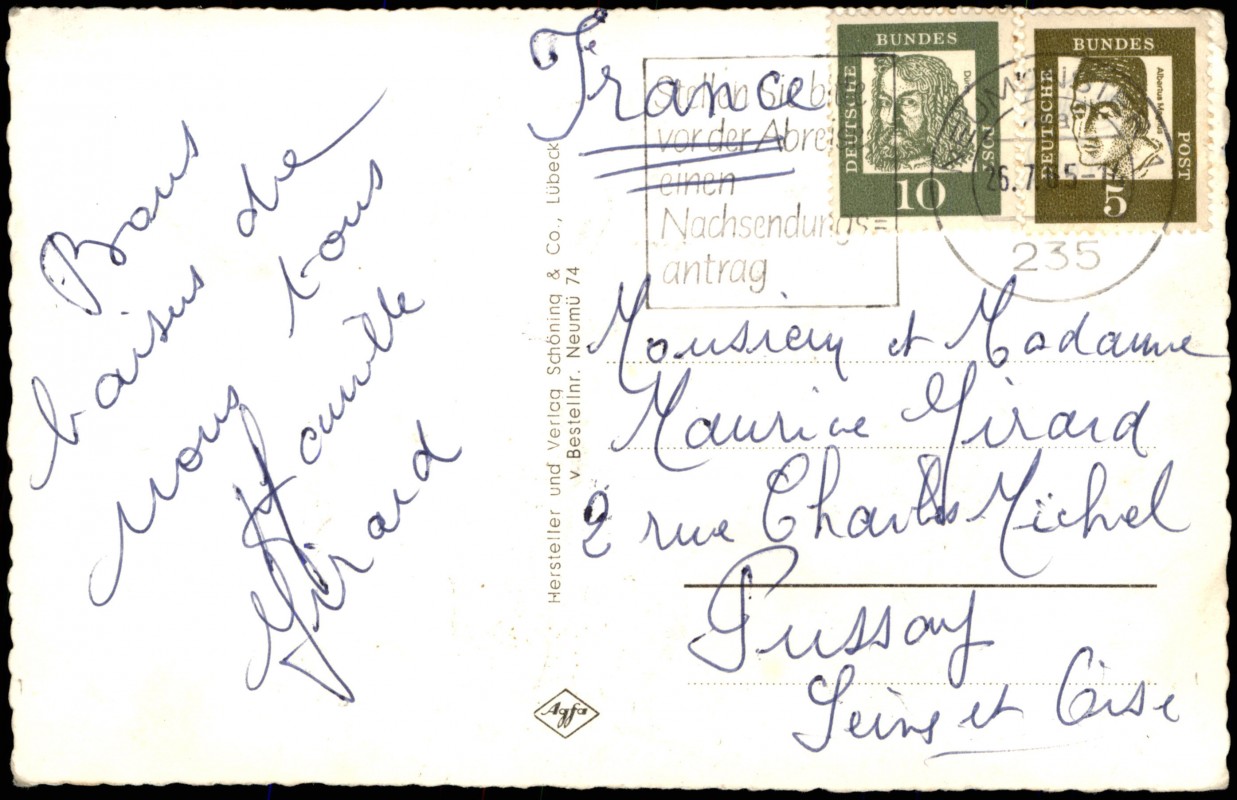 Bons
baisers de
nous tous
Famille
Girard
Hersteller und Verlag Schöning & Co., Lübeck
v. Bestellnr. Neumü 74
Agfa
France
Stellen Sie bitte
vor der Abreise
einen
Nachsendungs=
antrag
DEUTSCHE BUNDESPOST
10
DEUTSCHE BUNDES POST
Albertus Magnus
5
26.7.65-1
235
Monsieur et Madame
Maurice Girard
2 rue Charles Michel
Pussay
Seine et Oise